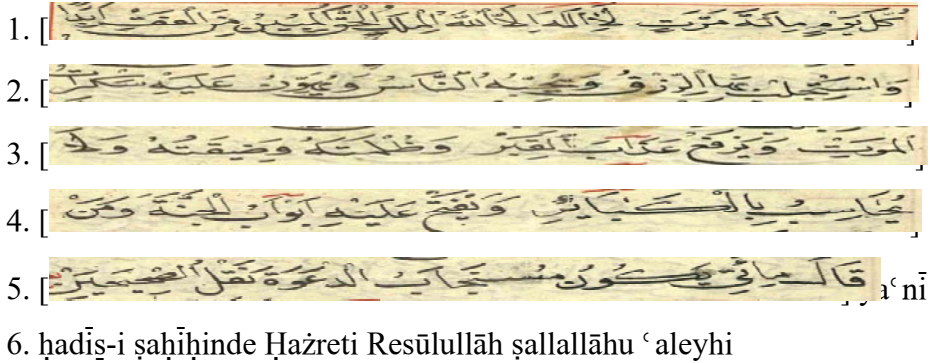 1. [كُلَّ يَوْمٍ مِائَةَ مَرَّتٍ لَا إِلَهَ إِلَّا اللهُ الْمَلِكُ الْحَقُّ الْمُبِينُ مِنَ الْفَقْرِ أَبَدًا]
2. [وَاسْتَجْلَبَ الرِّزْقُ وَيُحِبُّهُ النَّاسُ وَيُهَوِّنُ عَلَيْهِ سَكَرَاتُ]
3. [الْمَوْتِ وَيَرْفَعُ عَذَابَ الْقَبْرِ وَظُلْمَتَهُ وَضِيقَتَهُ وَلَا]
4. [يُحَاسِبُ بِالْكَبَائِرِ وَيَفْتَحُ عَلَيْهِ اَبْوَابُ الْجَنَّةَ وَمَنْ]
5. [قَالَ مِائَتَيْ يَكُونُ مُسْتَجَابُ الدَّعْوَةِ نَقْلُ الصَّحِيحَيْنِ] yaʿnī
6. ḥadīs̱-i ṣaḥīḥinde Ḥażreti Resūlullāh ṣallallāhu ʿaleyhi